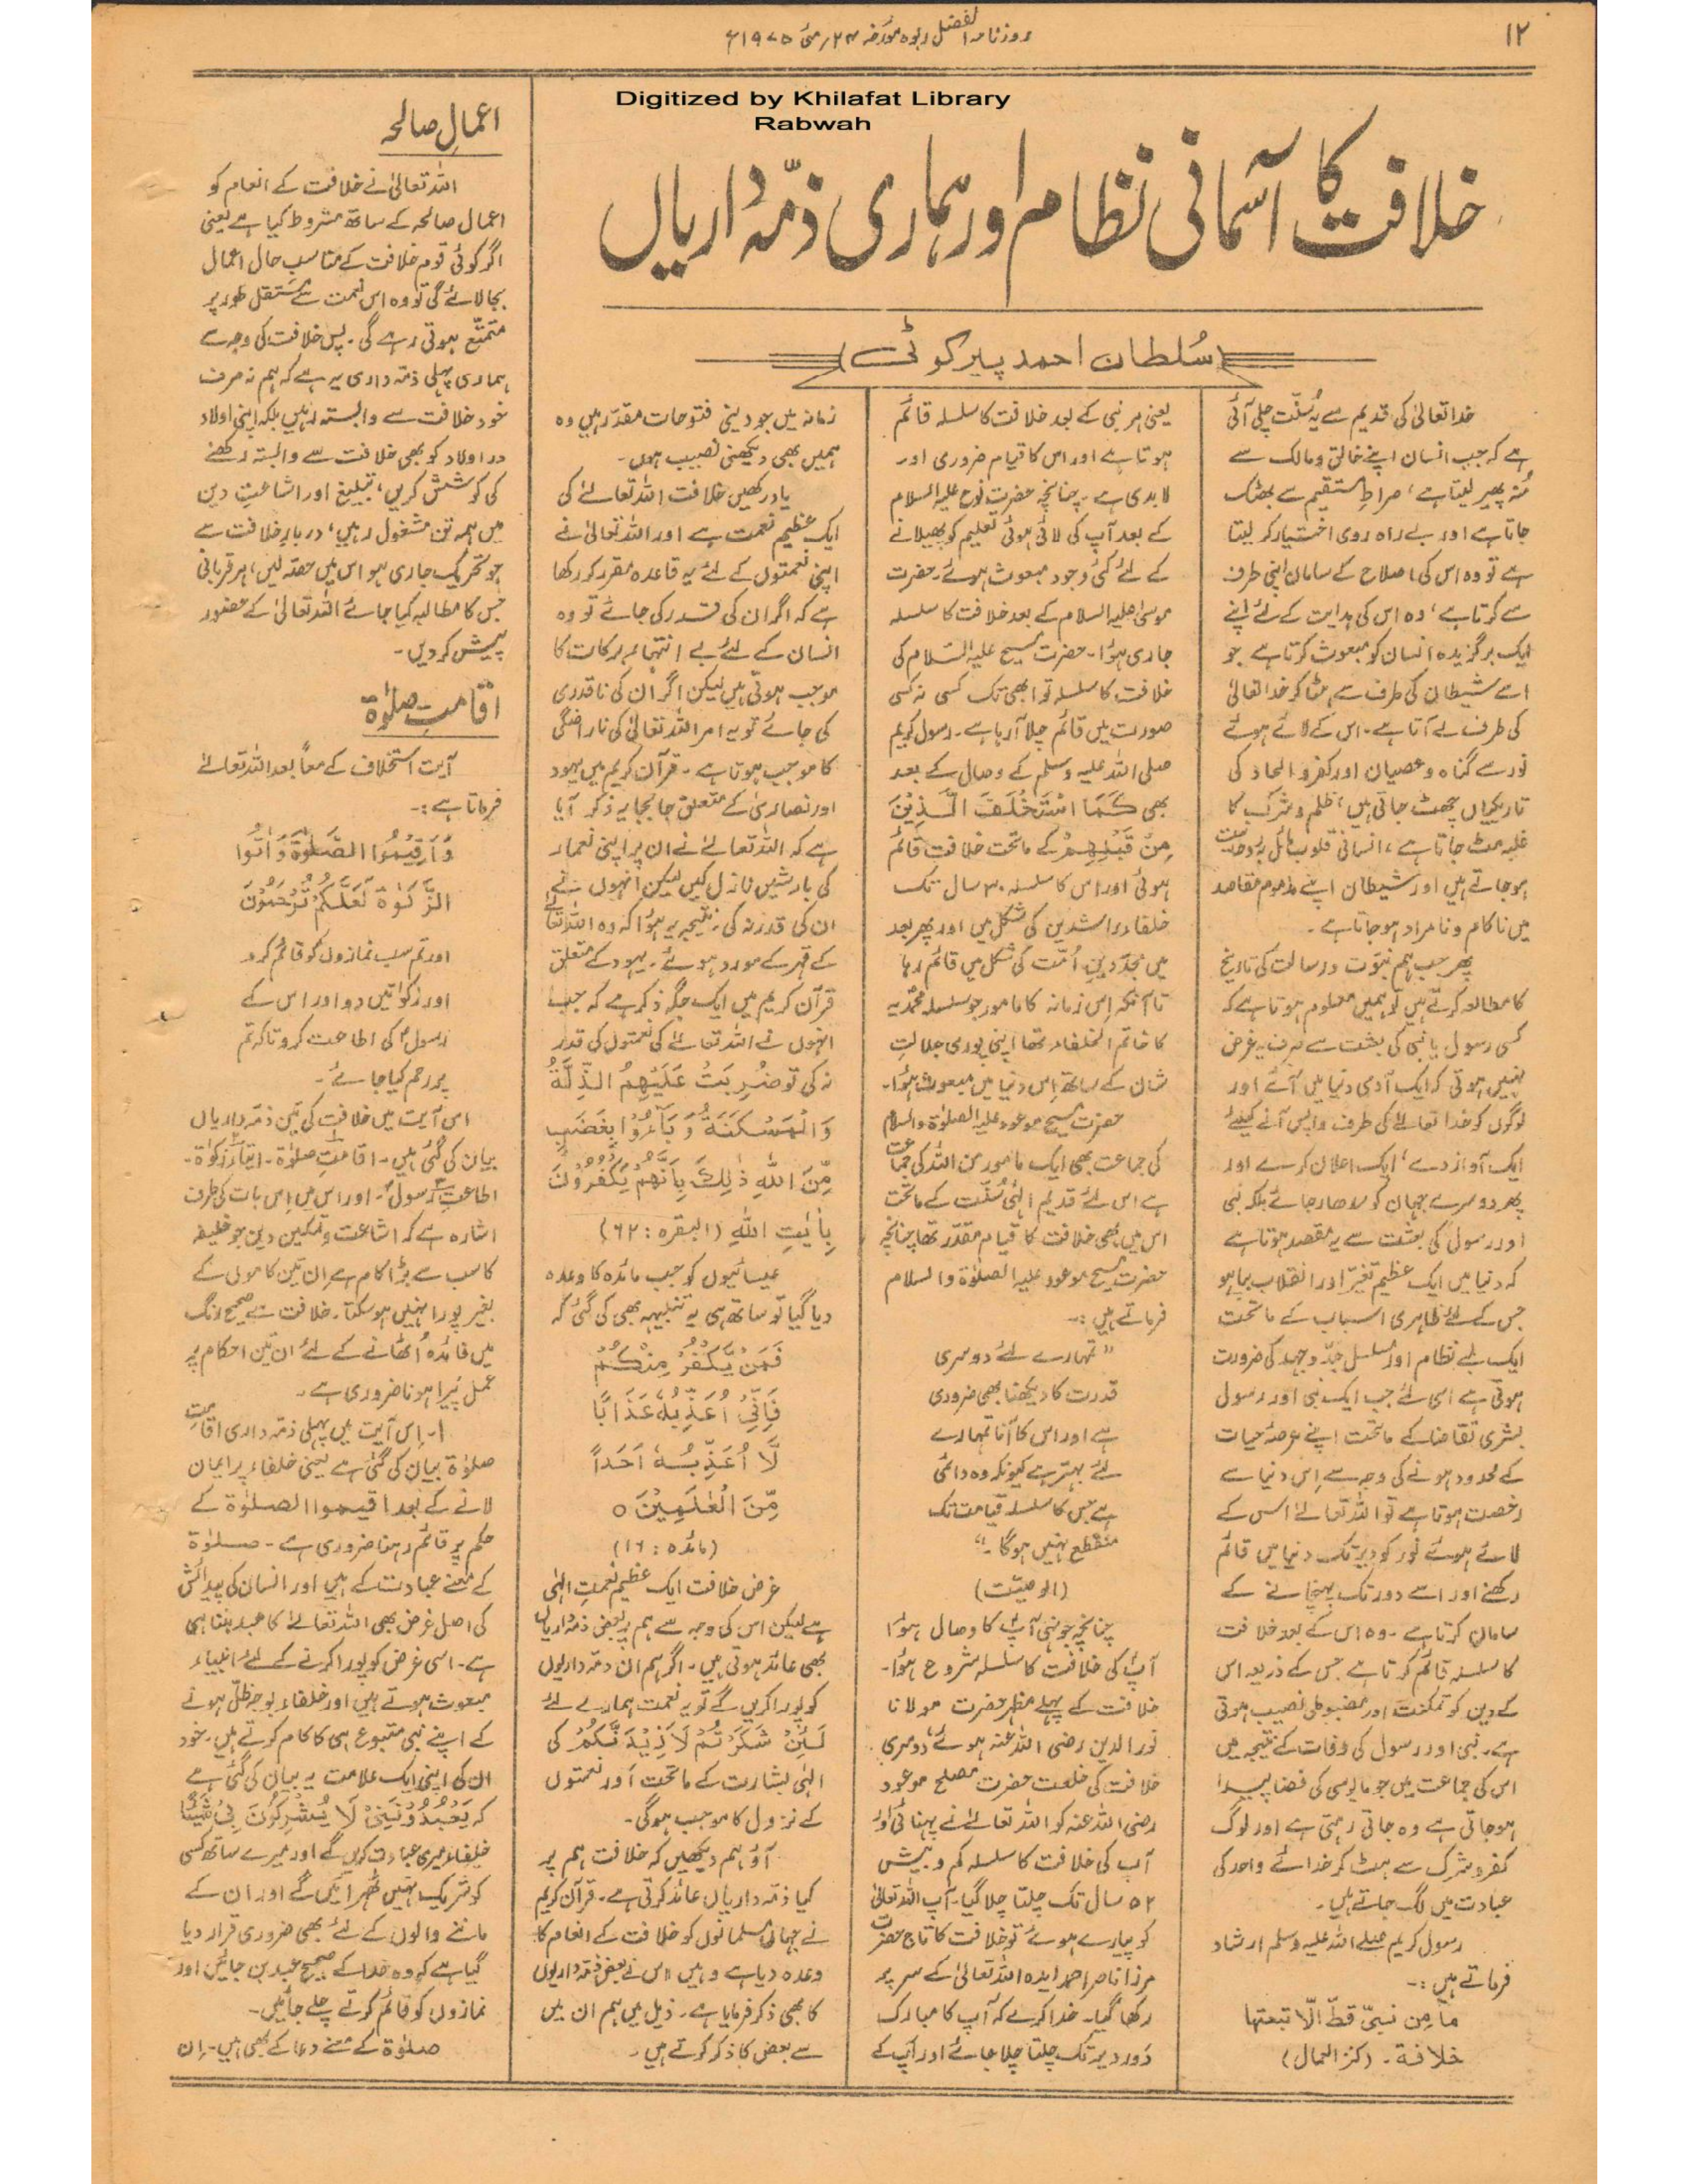 ۱۲
روزنامہ الفضل ربوہ مؤرخہ ۲۴؍مئی ۱۹۷۵ء
Digitized by Khilafat Library
Rabwah
خلافت کا آسمانی نظام اور ہماری ذمّہ داریاں
سُلطان احمد پیرکوٹی
خدا تعالیٰ کی قدیم سے یہ سُنّت چلی آئی
ہے کہ جب انسان اپنے خالق و مالک سے
مُنہ پھیر لیتا ہے، صراطِ مستقیم سے بھٹک
جاتا ہے اور بے راہ روی اختیار کر لیتا
ہے تو وہ اس کی اصلاح کے سامان اپنی طرف
سے کرتا ہے، وہ اس کی ہدایت کے لئے اپنے
ایک برگزیدہ انسان کو مبعوث کرتا ہے جو
اسے شیطان کی طرف سے ہٹا کر خدا تعالیٰ
کی طرف لے آتا ہے۔ اس کے لائے ہوئے
نور سے گناہ و عصیان اور کفر و الحاد کی
تاریکیاں چھٹ جاتی ہیں، ظلم و شرک کا
غلبہ مٹ جاتا ہے، انسانی قلوب مائل بروحانیت
ہو جاتے ہیں اور شیطان اپنے مذموم مقاصد
میں ناکام و نامراد ہو جاتا ہے۔
پھر جب ہم نبوّت و رسالت کی تاریخ
کا مطالعہ کرتے ہیں تو ہمیں معلوم ہوتا ہے کہ
کسی رسول یا نبی کی بعثت سے صرف یہ غرض
نہیں ہوتی کہ ایک آدمی دنیا میں آئے اور
لوگوں کو خدا تعالےٰ کی طرف واپس آنے کیلئے
ایک آواز دے، ایک اعلان کرے اور
پھر دوسرے جہان کو سدھار جائے بلکہ نبی
اور رسول کی بعثت سے یہ مقصد ہوتا ہے
کہ دنیا میں ایک عظیم تغیّر اور انقلاب بپا ہو
جس کے لئے ظاہری اسباب کے ماتحت
ایک لمبے نظام اور مسلسل جدّ و جہد کی ضرورت
ہوتی ہے اسی لئے جب ایک نبی اور رسول
بشری تقاضا کے ماتحت اپنے عرصۂ حیات
کے محدود ہونے کی وجہ سے اِس دنیا سے
رخصت ہوتا ہے تو اللہ تعالےٰ اس کے
لائے ہوئے نور کو دیر تک دنیا میں قائم
رکھنے اور اسے دور تک پہنچانے کے
سامان کرتا ہے۔ وہ اس کے بعد خلافت
کا سلسلہ قائم کرتا ہے جس کے ذریعہ اس
کے دین کو تمکنت اور مضبوطی نصیب ہوتی
ہے۔ نبی اور رسول کی وفات کے نتیجہ میں
اس کی جماعت میں جو مایوسی کی فضا پیدا
ہو جاتی ہے وہ جاتی رہتی ہے اور لوگ
کفر و شرک سے ہٹ کر خدائے واحد کی
عبادت میں لگ جاتے ہیں۔
رسول کریم صلے اللہ علیہ وسلم ارشاد
فرماتے ہیں:۔
ما مِن نبیّ قطّ الّا تبعتھا
خلافۃ۔ (کنز العمال)
یعنی ہر نبی کے بعد خلافت کا سلسلہ قائم
ہوتا ہے اور اس کا قیام ضروری اور
لابدی ہے۔ چنانچہ حضرت نوح علیہ السلام
کے بعد آپ کی لائی ہوئی تعلیم کو پھیلانے
کے لئے کئی وجود مبعوث ہوئے۔ حضرت
موسیٰ علیہ السلام کے بعد خلافت کا سلسلہ
جاری ہؤا۔ حضرت مسیح علیہ السّلام کی
خلافت کا سلسلہ تو ابھی تک کسی نہ کسی
صورت میں قائم چلا آ رہا ہے۔ رسول کریم
صلی اللہ علیہ وسلم کے وصال کے بعد
بھی کَمَا اسْتَخْلَفَ الَّذِیْنَ
مِنْ قَبْلِہِمْ کے ماتحت خلافت قائم
ہوئی اور اس کا سلسلہ ۳۰ سال تک
خلفاء راشدین کی شکل میں اور پھر بعد
میں مجدّدینِ اُمّت کی شکل میں قائم رہا
تاآنکہ اِس زمانہ کا مامور جو سلسلہ محمّدیہ
کا خاتم الخلفاء تھا اپنی پوری جلالتِ
شان کے ساتھ اِس دنیا میں مبعوث ہؤا۔
حضرت مسیح موعود علیہ الصلوٰۃ والسلام
کی جماعت بھی ایک مامور من اللہ کی جماعت
ہے اس لئے قدیم الٰہی سُنّت کے ماتحت
اس میں بھی خلافت کا قیام مقدّر تھا چنانچہ
حضرت مسیح موعود علیہ الصلوٰۃ والسلام
فرماتے ہیں:۔
”تمہارے لئے دوسری
قدرت کا دیکھنا بھی ضروری
ہے اور اس کا آنا تمہارے
لئے بہتر ہے کیونکہ وہ دائمی
ہے جس کا سلسلہ قیامت تک
منقطع نہیں ہوگا۔“
(الوصیّت)
چنانچہ جونہی آپؑ کا وصال ہؤا
آپؑ کی خلافت کا سلسلہ شروع ہؤا۔
خلافت کے پہلے مظہر حضرت مولانا
نورالدین رضی اللہ عنہ ہوئے، دوسری
خلافت کی خلعت حضرت مصلح موعود
رضی اللہ عنہ کو اللہ تعالےٰ نے پہنائی اور
آپ کی خلافت کا سلسلہ کم و بیش
۵۲ سال تک چلتا چلا گیا۔ آپ اللہ تعالیٰ
کو پیارے ہوئے تو خلافت کا تاج حضرت
مرزا ناصر احمد ایدہ اللہ تعالیٰ کے سر پر
رکھا گیا۔ خدا کرے کہ آپ کا مبارک
دَور دیر تک چلتا چلا جائے اور آپ کے
زمانہ میں جو دینی فتوحات مقدّر ہیں وہ
ہمیں بھی دیکھنی نصیب ہوں۔
یاد رکھیں خلافت اللہ تعالےٰ کی
ایک عظیم نعمت ہے اور اللہ تعالیٰ نے
اپنی نعمتوں کے لئے یہ قاعدہ مقرر کر رکھا
ہے کہ اگر ان کی قدر کی جائے تو وہ
انسان کے لئے بے انتہاء برکات کا
موجب ہوتی ہیں لیکن اگر اُن کی ناقدری
کی جائے تو یہ امر اللہ تعالیٰ کی ناراضگی
کا موجب ہوتا ہے۔ قرآن کریم میں یہود
اور نصاریٰ کے متعلق جا بجا یہ ذکر آیا
ہے کہ اللہ تعالےٰ نے ان پر اپنی نعماء
کی بارشیں نازل کیں لیکن انہوں نے
ان کی قدر نہ کی۔ نتیجہ یہ ہؤا کہ وہ اللہ تعالےٰ
کے قہر کے مورد ہوئے۔ یہود کے متعلق
قرآن کریم میں ایک جگہ ذکر ہے کہ جب
انہوں نے اللہ تعالےٰ کی نعمتوں کی قدر
نہ کی تو ضُرِبَتْ عَلَیْہِمُ الذِّلَّةُ
وَالْمَسْکَنَةُ وَبَآءُوْا بِغَضَبٍ
مِّنَ اللّٰہِ ذٰلِکَ بِاَنَّہُمْ یَکْفُرُوْنَ
بِاٰیٰتِ اللّٰہِ (البقرہ: ۶۲)
عیسائیوں کو جب مائدہ کا وعدہ
دیا گیا تو ساتھ ہی یہ تنبیہہ بھی کی گئی کہ
فَمَنْ یَّکْفُرْ مِنْکُمْ
فَاِنِّیْٓ اُعَذِّبُہٗ عَذَابًا
لَّا اُعَذِّبُہٗ اَحَداً
مِّنَ الْعٰلَمِیْنَ ○
(مائدہ: ۱۱۶)
غرض خلافت ایک عظیم نعمتِ الٰہی
ہے لیکن اس کی وجہ سے ہم پر بعض ذمّہ داریاں
بھی عائد ہوتی ہیں۔ اگر ہم ان ذمّہ داریوں
کو پورا کریں گے تو یہ نعمت ہمارے لئے
لَئِنْ شَکَرْتُمْ لَاَزِیْدَنَّکُمْ کی
الٰہی بشارت کے ماتحت اَور نعمتوں
کے نزول کا موجب ہوگی۔
آؤ ہم دیکھیں کہ خلافت ہم پر
کیا ذمّہ داریاں عائد کرتی ہے۔ قرآن کریم
نے جہاں مسلمانوں کو خلافت کے انعام کا
وعدہ دیا ہے وہیں اس نے بعض ذمّہ داریوں
کا بھی ذکر فرمایا ہے۔ ذیل میں ہم ان میں
سے بعض کا ذکر کرتے ہیں۔
اعمالِ صالحہ
اللہ تعالیٰ نے خلافت کے انعام کو
اعمال صالحہ کے ساتھ مشروط کیا ہے یعنی
اگر کوئی قوم خلافت کے مناسب حال اعمال
بجا لائے گی تو وہ اس نعمت سے مستقل طور پر
متمتّع ہوتی رہے گی۔ پس خلافت کی وجہ سے
ہماری پہلی ذمّہ داری یہ ہے کہ ہم نہ صرف
خود خلافت سے وابستہ رہیں بلکہ اپنی اولاد
در اولاد کو بھی خلافت سے وابستہ رکھنے
کی کوشش کریں، تبلیغ اور اشاعتِ دین
میں ہمہ تن مشغول رہیں، دربارِ خلافت سے
جو تحریک جاری ہو اس میں حصّہ لیں، ہر قربانی
جس کا مطالبہ کیا جائے اللہ تعالیٰ کے حضور
پیش کر دیں۔
اقامتِ صلوٰۃ
آیت استخلاف کے معاً بعد اللہ تعالےٰ
فرماتا ہے:۔
وَاَقِیْمُوا الصَّلٰوةَ وَاٰتُوا
الزَّکٰوةَ لَعَلَّکُمْ تُرْحَمُوْنَ
اور تم سب نمازوں کو قائم کرو
اور زکوٰتیں دو اور اس کے
رسولؐ کی اطاعت کرو تا کہ تم
پر رحم کیا جائے۔
اس آیت میں خلافت کی تین ذمّہ داریاں
بیان کی گئی ہیں۔ اقامت صلوٰۃ۔ ایتاء زکوٰۃ۔
اطاعتِ رسولؐ۔ اور اس میں اِس بات کی طرف
اشارہ ہے کہ اشاعت و تمکین دین جو خلیفہ
کا سب سے بڑا کام ہے اِن تین کاموں کے
بغیر پورا نہیں ہو سکتا۔ خلافت سے صحیح رنگ
میں فائدہ اُٹھانے کے لئے ان تین احکام پر
عمل پیرا ہونا ضروری ہے۔
۱۔ اِس آیت میں پہلی ذمّہ داری اقامت
صلوٰۃ بیان کی گئی ہے یعنی خلفاء پر ایمان
لانے کے بعد اقیموا الصلوٰۃ کے
حکم پر قائم رہنا ضروری ہے۔ صلوٰۃ
کے معنے عبادت کے ہیں اور انسان کی پیدائش
کی اصل غرض بھی اللہ تعالےٰ کا عبد بننا ہی
ہے۔ اسی غرض کو پورا کرنے کے لئے انبیاء
مبعوث ہوتے ہیں اور خلفاء بوجہ ظلّ ہونے
کے اپنے نبی متبوع ہی کا کام کرتے ہیں۔ خود
ان کی اپنی ایک علامت یہ بیان کی گئی ہے
کہ یَعْبُدُوْنَنِیْ لَا یُشْرِکُوْنَ بِیْ شَیْئًا
خلفاء میری عبادت کریں گے اور میرے ساتھ کسی
کو شریک نہیں ٹھہرائیں گے اور ان کے
ماننے والوں کے لئے بھی ضروری قرار دیا
گیا ہے کہ وہ خدا کے صحیح عبد بن جائیں اور
نمازوں کو قائم کرتے چلے جائیں۔
صلوٰۃ کے معنے دعا کے بھی ہیں۔ اِن